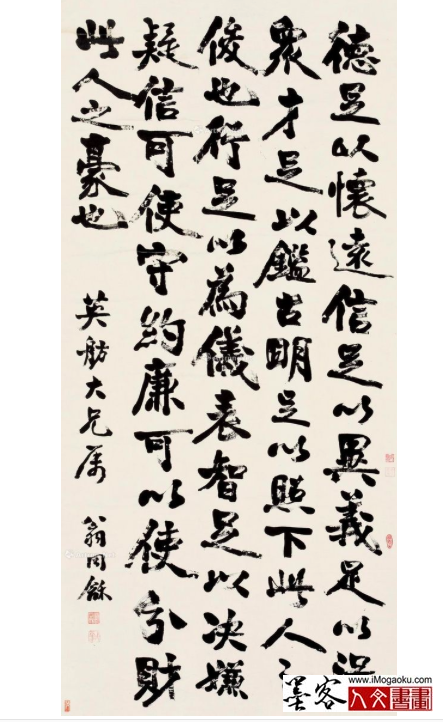 德足以懷遠信足以異義足以得
衆才足以鑑古明足以照下此人之
俊也行足以為儀表智足以决嫌
疑信可使守約廉可以使分財
此人之豪也
英舫大兄属
翁同龢
墨客
www.iMogaoku.com
人文書畫